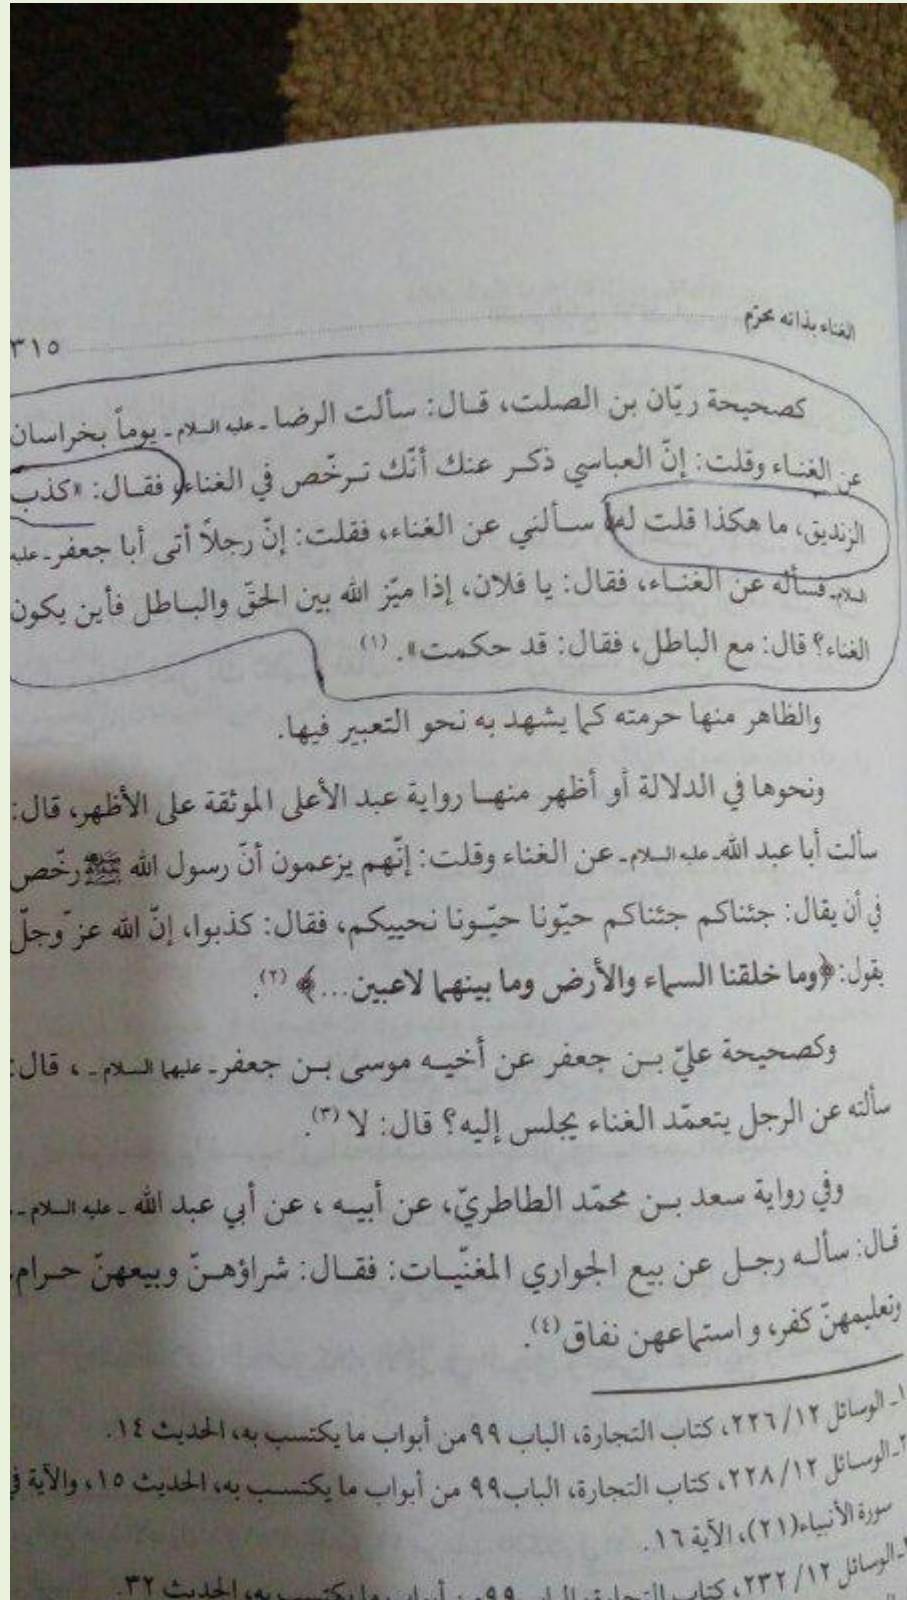 الغناء بذاته محرّم ٣١٥
كصحيحة ريّان بن الصلت، قال: سألت الرضا ـ عليه السلام ـ يوماً بخراسان
عن الغناء وقلت: إنّ العباسي ذكر عنك أنّك ترخّص في الغناء، فقال: «كذب
الزنديق، ما هكذا قلت له، سألني عن الغناء، فقلت: إنّ رجلاً أتى أبا جعفر ـ عليه
السلام ـ فسأله عن الغناء، فقال: يا فلان، إذا ميّز الله بين الحقّ والباطل فأين يكون
الغناء؟ قال: مع الباطل، فقال: قد حكمت». (١)
والظاهر منها حرمته كما يشهد به نحو التعبير فيها.
ونحوها في الدلالة أو أظهر منها رواية عبد الأعلى الموثقة على الأظهر، قال:
سألت أبا عبد الله ـ عليه السلام ـ عن الغناء وقلت: إنّهم يزعمون أنّ رسول الله ﷺ رخّص
في أن يقال: جئناكم جئناكم حيّونا حيّونا نحييكم، فقال: كذبوا، إنّ الله عزّ وجلّ
يقول: ﴿وما خلقنا السماء والأرض وما بينهما لاعبين...﴾ (٢).
وكصحيحة عليّ بن جعفر عن أخيه موسى بن جعفر ـ عليهما السلام ـ ، قال:
سألته عن الرجل يتعمّد الغناء يجلس إليه؟ قال: لا (٣).
وفي رواية سعد بن محمّد الطاطريّ، عن أبيه ، عن أبي عبد الله ـ عليه السلام ـ
قال: سأله رجل عن بيع الجواري المغنّيات: فقال: شراؤهنّ وبيعهنّ حرام،
وتعليمهنّ كفر، و استماعهن نفاق (٤).
١ـ الوسائل ١٢/ ٢٢٦، كتاب التجارة، الباب ٩٩ من أبواب ما يكتسب به، الحديث ١٤.
٢ـ الوسائل ١٢/ ٢٢٨، كتاب التجارة، الباب ٩٩ من أبواب ما يكتسب به، الحديث ١٥، والآية في
سورة الأنبياء(٢١)، الآية ١٦.
الوسائل ١٢/ ٢٣٢، كتاب التجارة، الباب ٩٩ من أبواب ما يكتسب به، الحديث ٣٢.